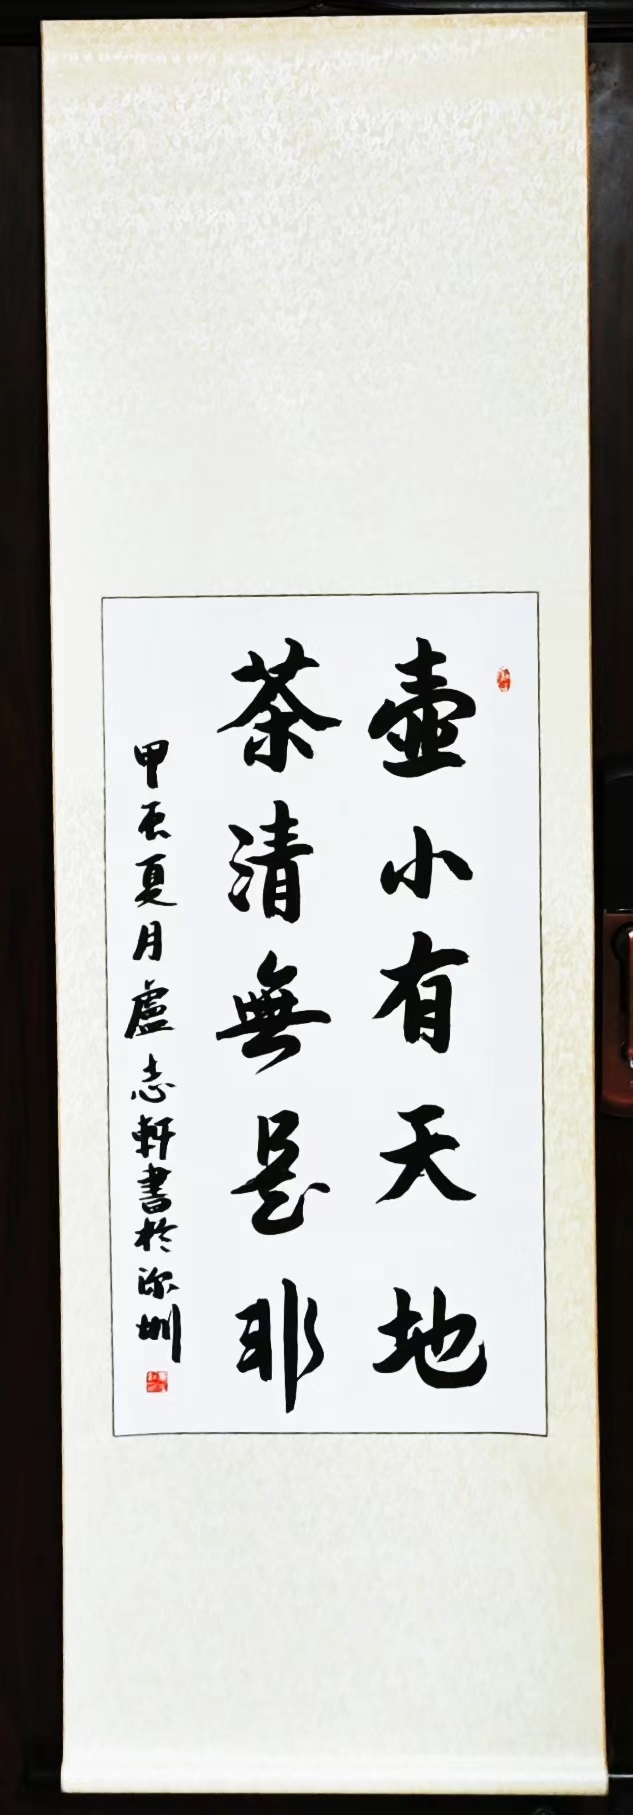 壺小有天地
茶清無是非
甲辰夏月盧志軒書於深圳